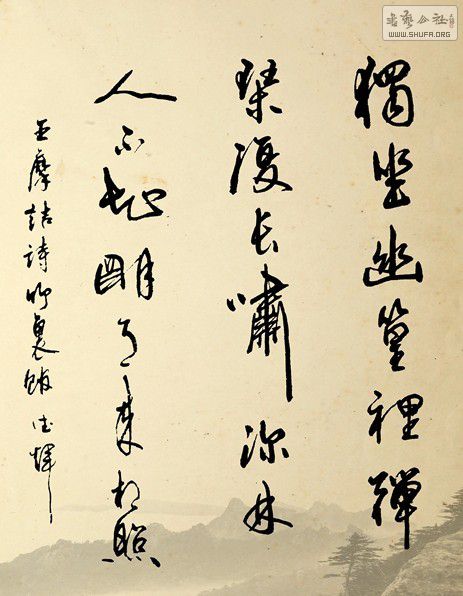 獨坐幽篁裡彈
琴復長嘯深林
人不知明月來相照
王摩詰詩竹裏館
書藝公社
WWW.SHUFA.ORG